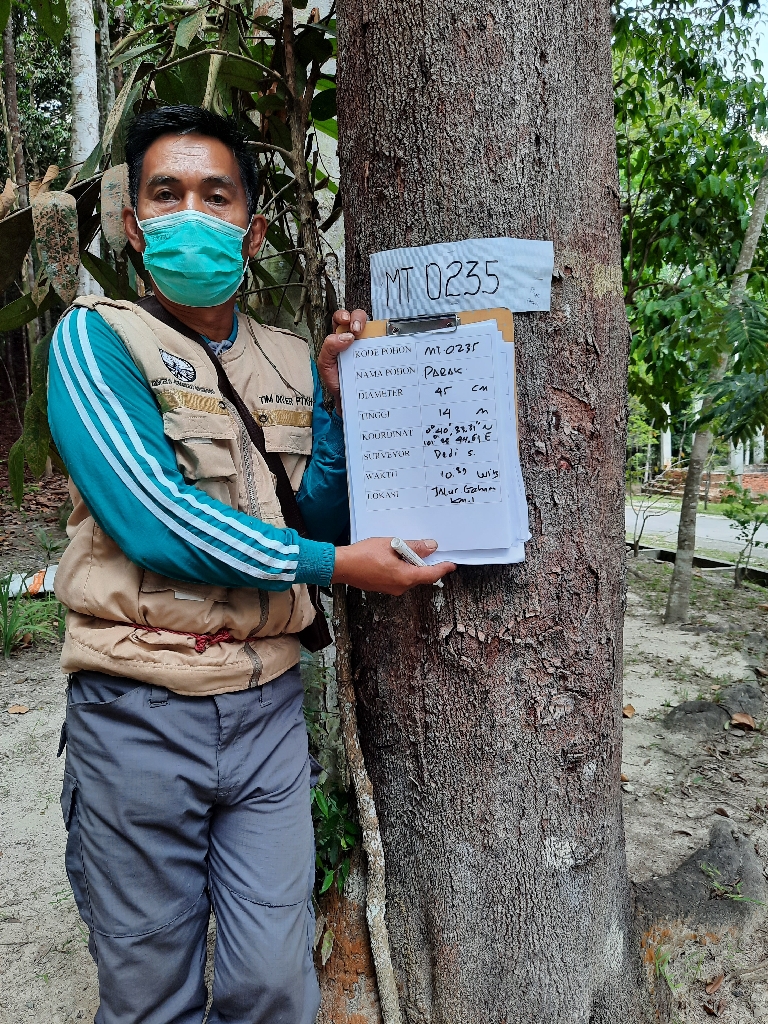 MT 0235
KODE POHON MT.0235
NAMA POHON PARAK
DIAMETER 45 CM
TINGGI 14 M
KOORDINAT 0° 40' 33.31" N
101° 44.64 E
SURVEYOR Dedi S.
WAKTU 10.39 WIB
LOKASI Jalur Gaharu